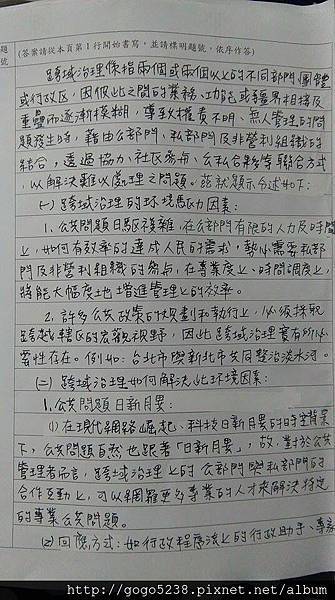 題號
(答案請從本頁第1行開始書寫，並請標明題號，依序作答)
跨域治理係指兩個或兩個以上的不同部門、團體
或行政區，因彼此之間的業務、功能或疆界相接及
重疊而逐漸模糊，導致權責不明、無人管理的問
題發生時，藉由公部門、私部門及非營利組織的
結合，透過協力、社區參與、公私合夥等聯合方式
，以解決難以處理之問題。茲就題示分述如下：
(一) 跨域治理的環境驅力因素：
1. 公共問題日驅複雜，在公部門有限的人力及時間
上，如何有效率的達成人民的需求，勢必需要私部
門及非營利組織的參與，在專業度上、時間調度上，
將能大幅度地增進管理上的效率。
2. 許多公共政策的規劃和執行上，必須採取
跨越轄區的宏觀視野，因此跨域治理實有所必
要性存在。例如：台北市與新北市共同整治淡水河。
(二) 跨域治理如何解決此環境因素：
1. 公共問題日新月異：
(1) 在現代網路崛起、科技日新月異的時空背景
下，公共問題自然也跟著「日新月異」，故，對於公共
管理者而言，跨域治理上的公部門與私部門的
合作互動上，可以網羅更多專業的人才來解決特定
的專業公共問題。
(2) 回應方式：如行政程序法上的行政助手、專家
http://gogo5238.pixnet.net/album